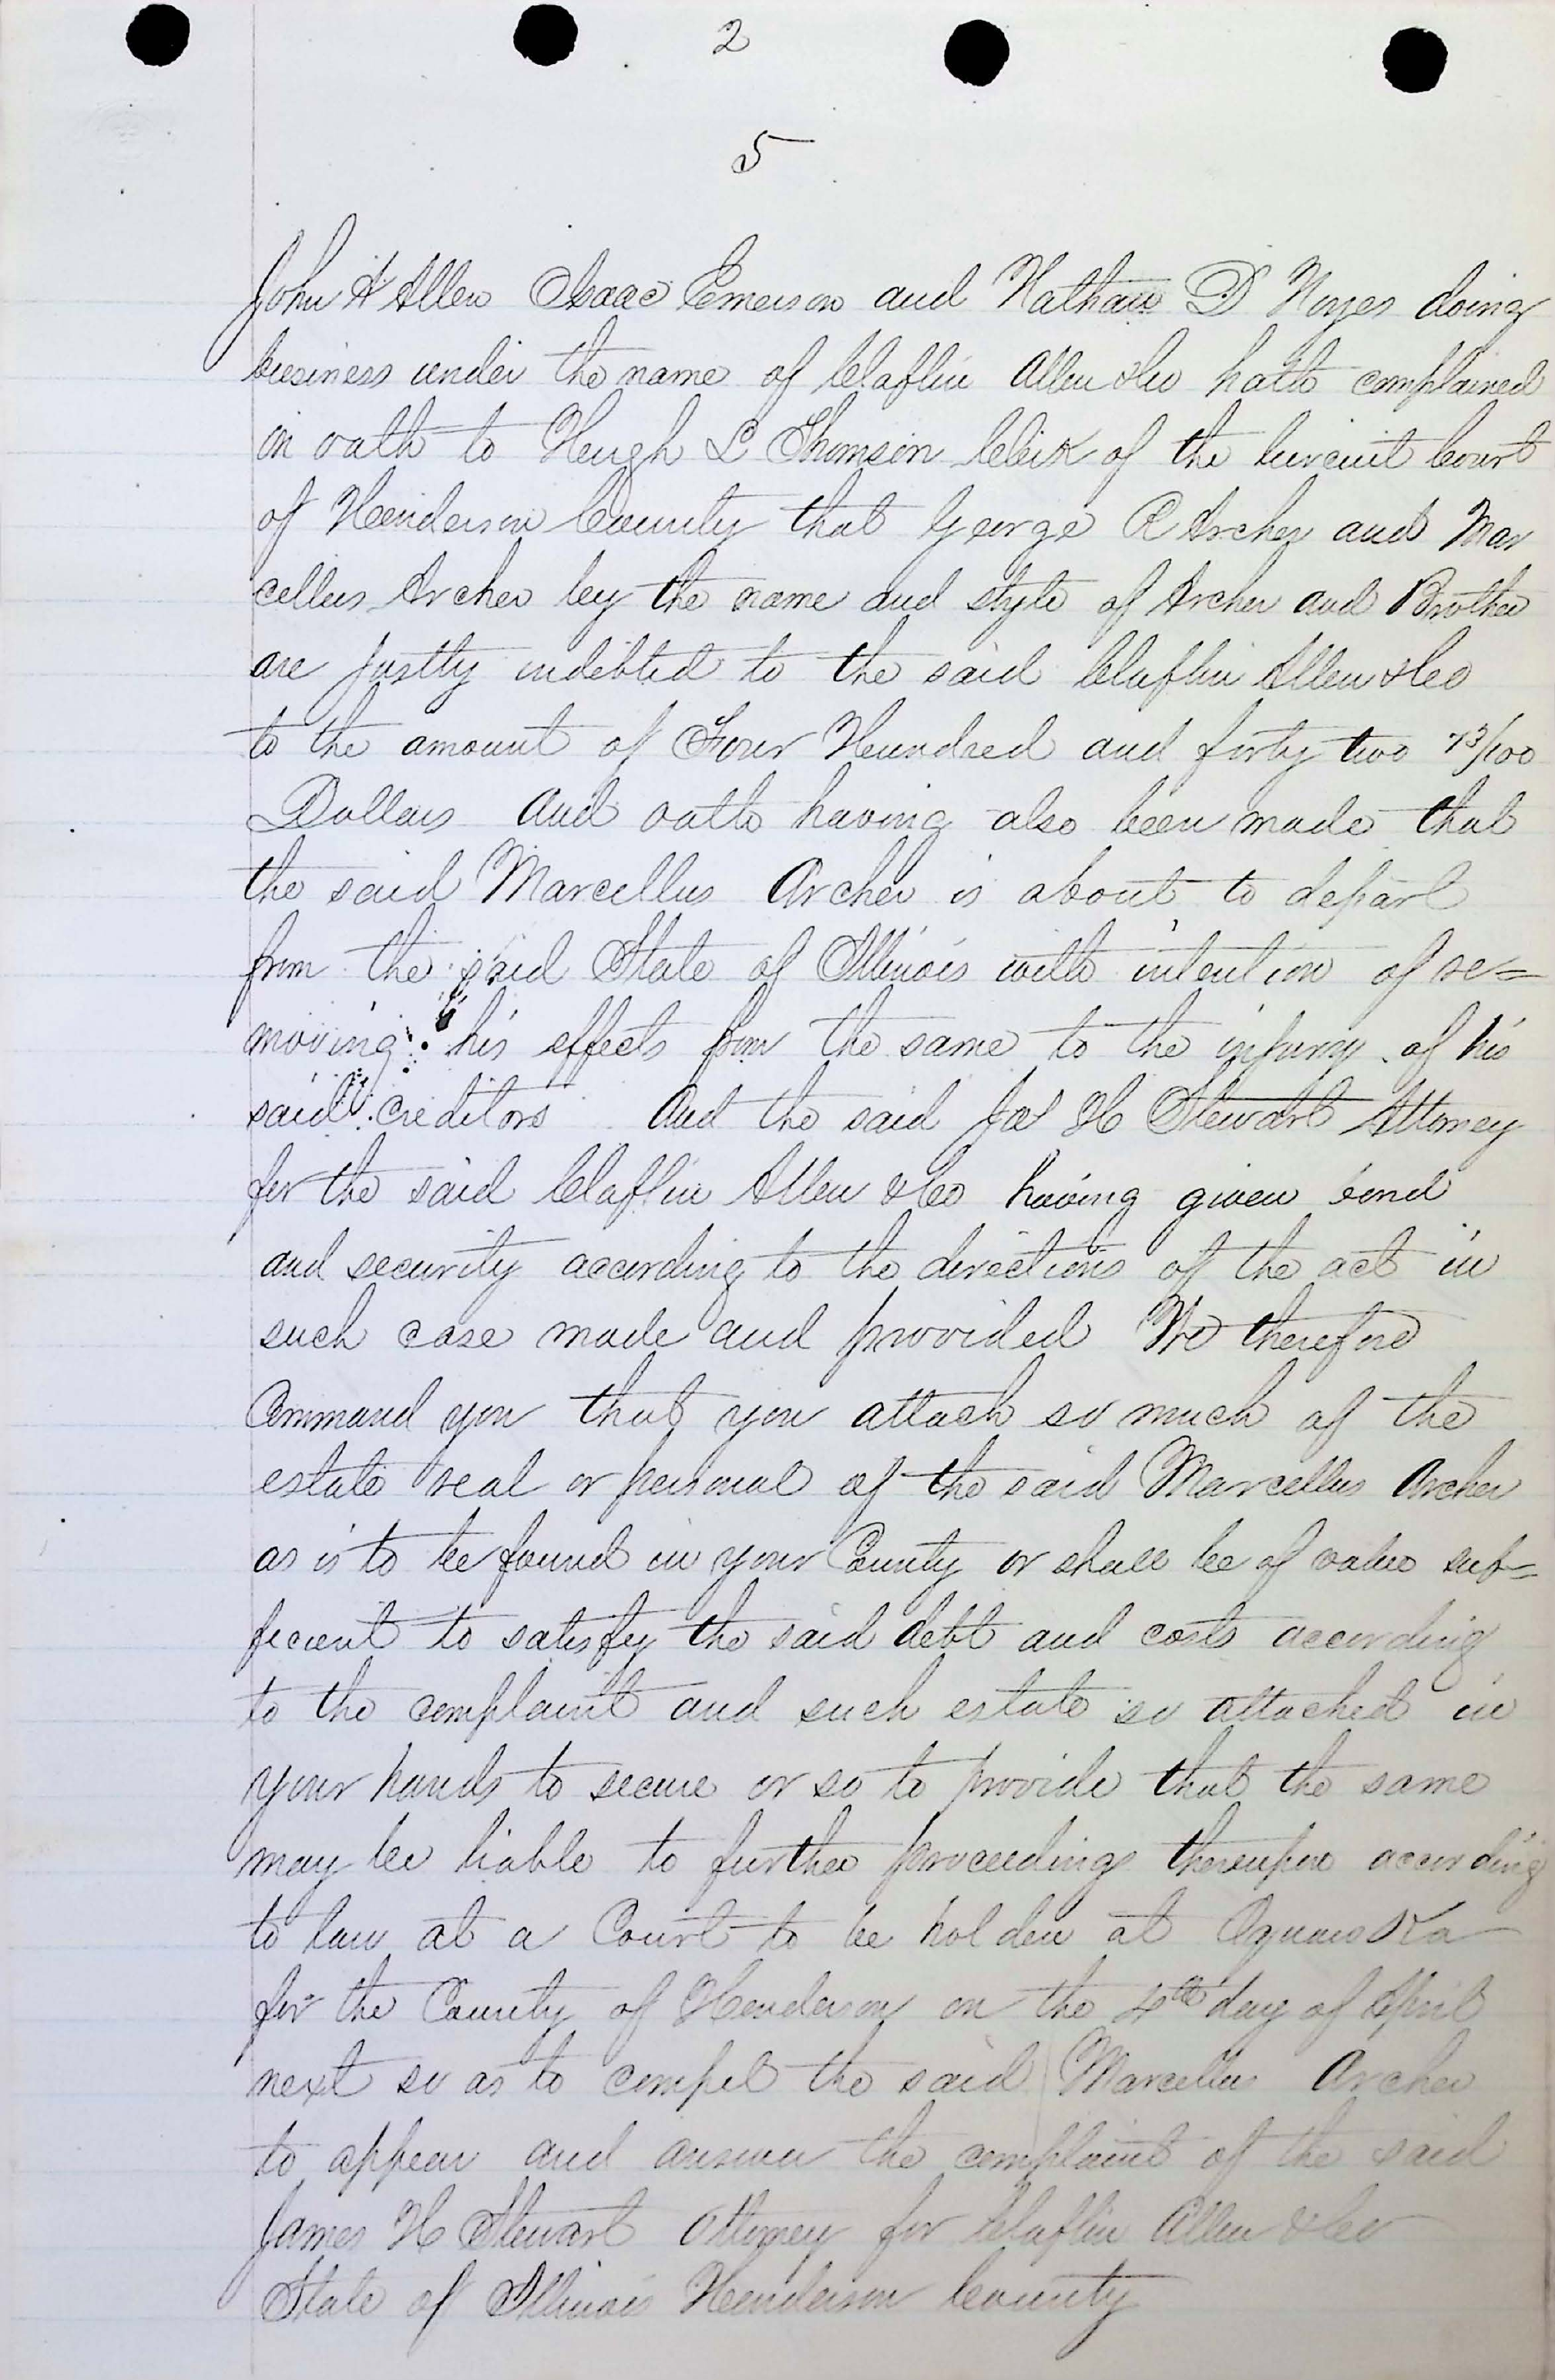 2
5
John A Allen Isaac Emerson and Nathan D Noyes doing
business under the name of Claflin Allen & Co hath complained
on oath to Hugh L Thomson Clerk of the Circuit Court
of Henderson County that George R Archer and Mar
cellus Archer by the name and style of Archer and Brother
are justly indebted to the said Claflin Allen & Co
to the amount of Four Hundred and forty two 73/100
Dollars And oath having also been made that
the said Marcellus Archer is about to depart
from the said State of Illinois with intention of re=
moving his effects from the same to the injury of his
said creditors And the said Jas H Stewart Attorney
for the said Claflin Allen & Co having given bond
and security according to the directions of the act in
such case made and provided We therefore
Command you that you attach so much of the
estate real or personal of the said Marcellus Archer
as is to be found in your County or shall be of value suf=
ficient to satisfy the said debt and costs according
to the complaint and such estate so attached in
your hands to secure or so to provide that the same
may be liable to further proceedings thereupon according
to law at a Court to be holden at Oquawka
for the County of Henderson on the 4th day of April
next so as to compel the said Marcellus Archer
to appear and answer the complaint of the said
James H Stewart Attorney for Claflin Allen & Co
State of Illinois Henderson County